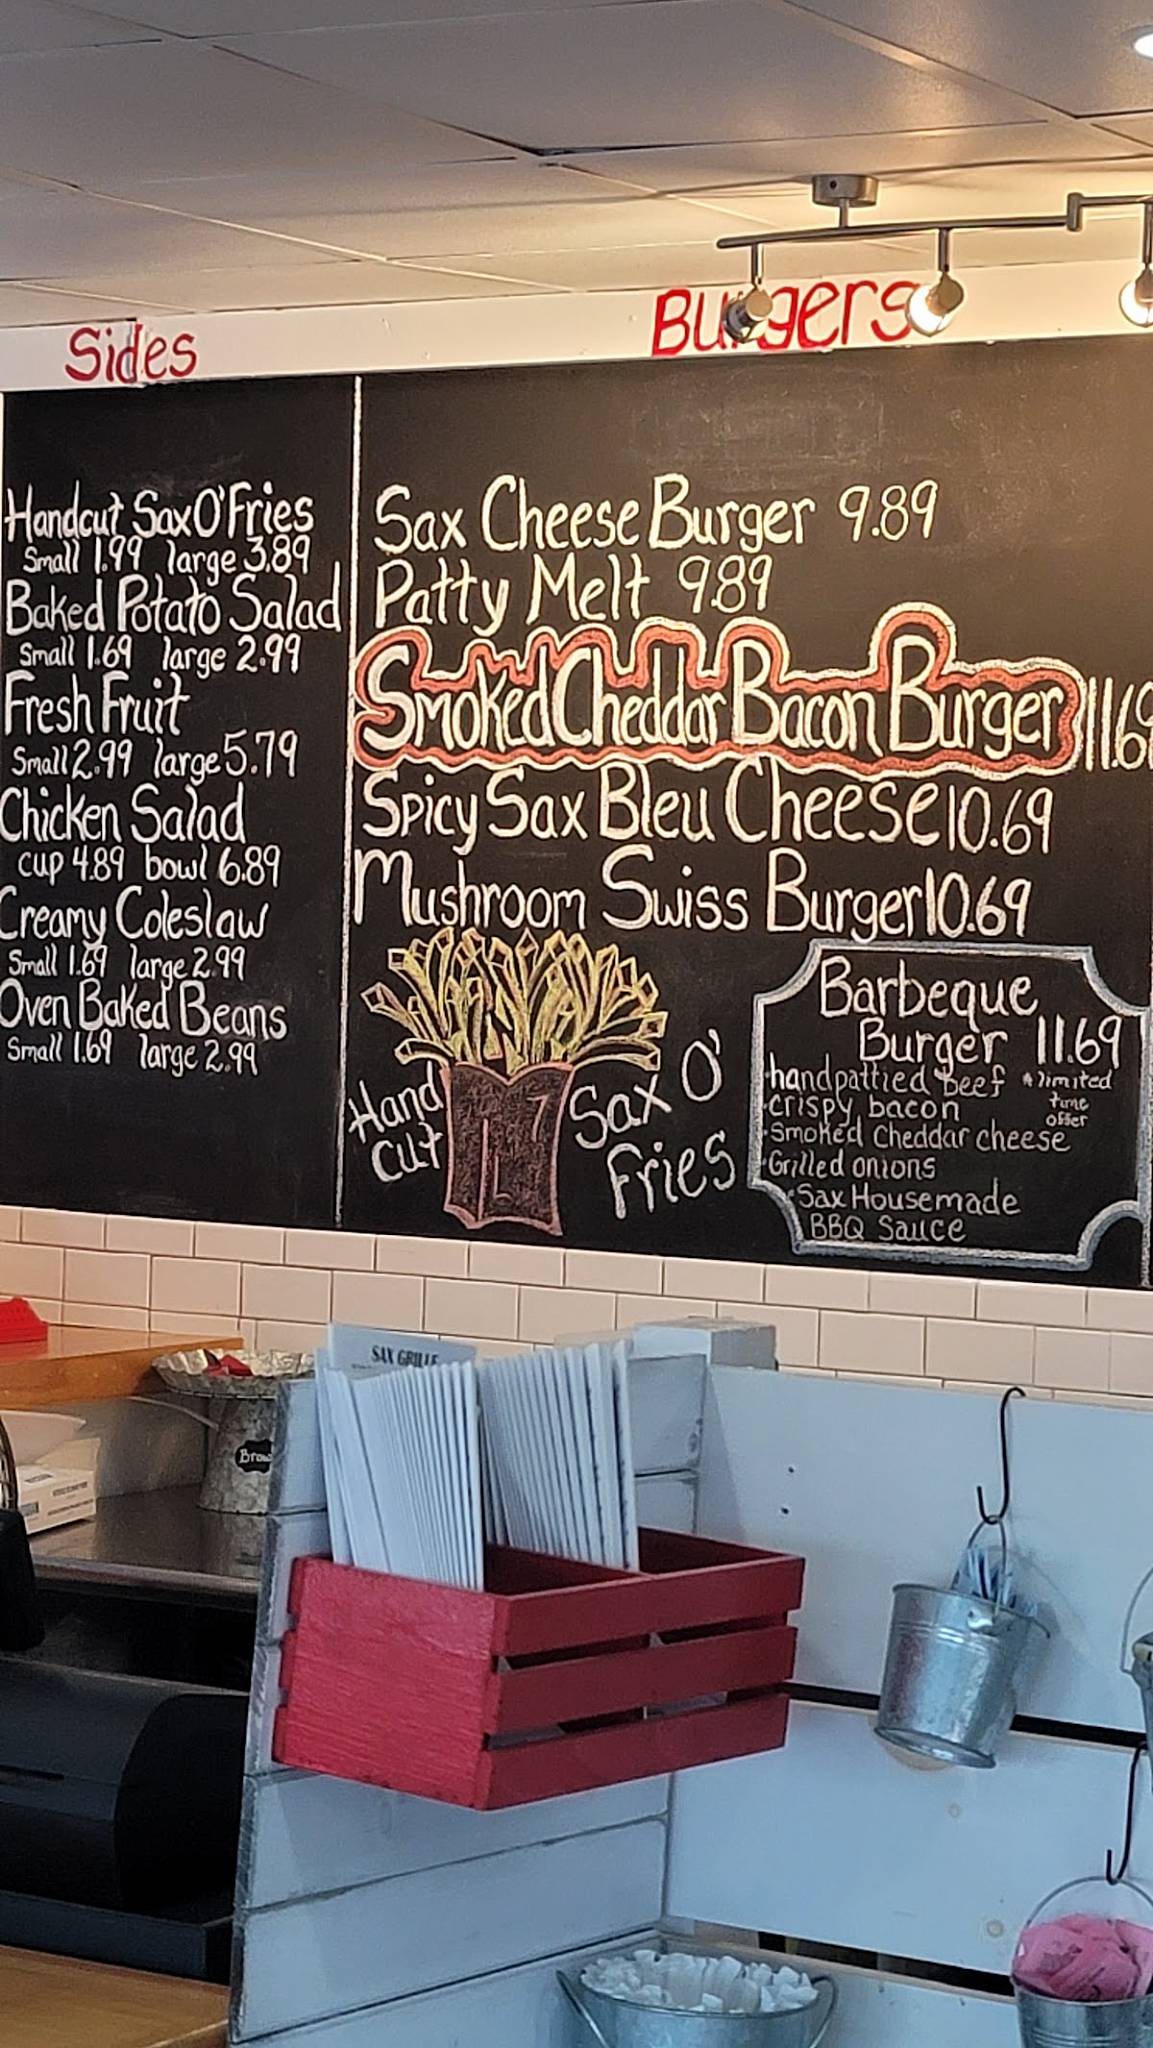 Sides
Handcut SaxO'Fries
Small 1.99 large 3.89
Baked Potato Salad
small 1.69 large 2.99
Fresh Fruit
Small 2.99 large 5.79
Chicken Salad
cup 4.89 bowl 6.89
Creamy Coleslaw
Small 1.69 large 2.99
Oven Baked Beans
Small 1.69 large 2.99
Burgers
Sax Cheese Burger 9.89
Patty Melt 9.89
Smoked Cheddar Bacon Burger 11.69
Spicy Sax Bleu Cheese 10.69
Mushroom Swiss Burger 10.69
Hand
cut
Sax O'
Fries
Barbeque
Burger 11.69
handpattied beef
*limited
time
offer
crispy bacon
Smoked Cheddar cheese
Grilled onions
Sax Housemade
BBQ Sauce
SAX GRILLE